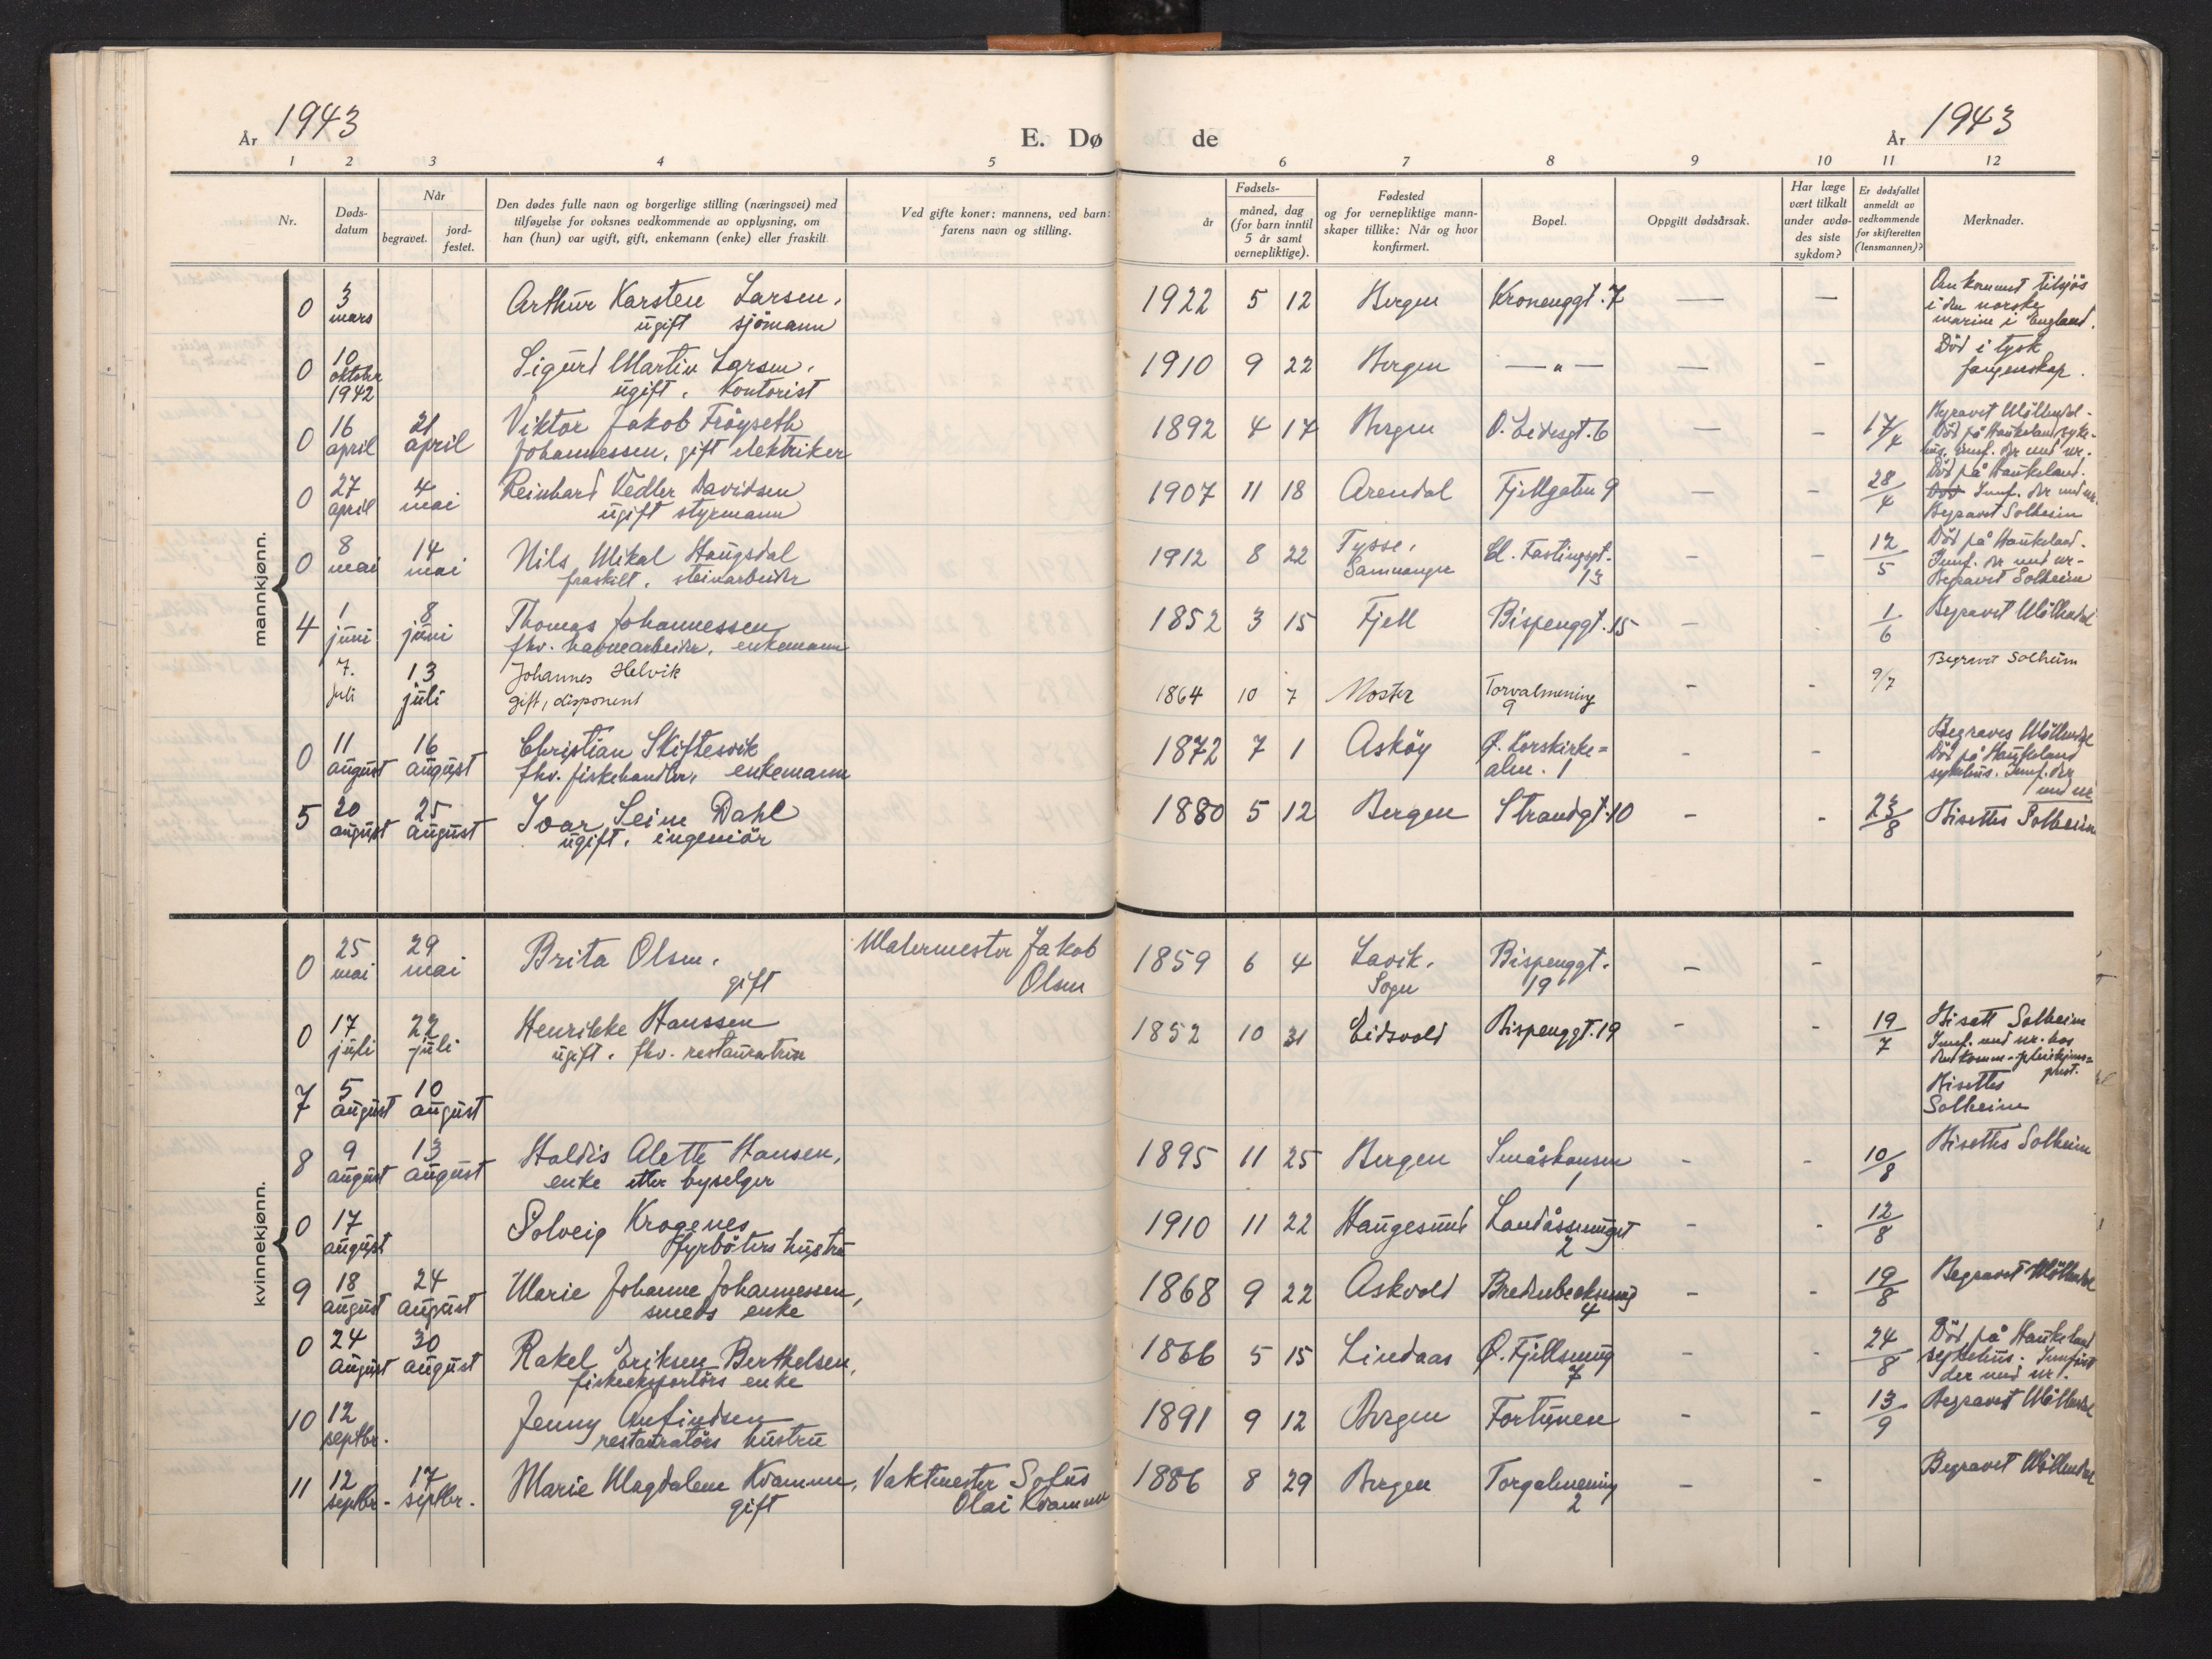 År 1943
E. Dø de
År 1943
1 2 3 4 5 6 7 8 9 10 11 12
Nr.
Døds-
datum
Når
begravet.
jord-
festet.
Den dødes fulle navn og borgerlige stilling (næringsvei) med
tilføyelse for voksnes vedkommende av opplysning, om
han (hun) var ugift, gift, enkemann (enke) eller fraskilt
Ved gifte koner: mannens, ved barn:
farens navn og stilling.
Fødsels-
år
måned, dag
(for barn inntil
5 år samt
vernepliktige).
Fødested
og for vernepliktige mann-
skaper tillike: Når og hvor
konfirmert.
Bopel.
Oppgitt dødsårsak.
Har læge
vært tilkalt
under avdø-
des siste
sykdom?
Er dødsfallet
anmeldt av
vedkommende
for skifteretten
(lensmannen)?
Merknader.
mannkjønn.
0 3 mars Arthur Karsten Larsen, 1922 5 12 Bergen Kronenggt. 7 — — Omkommet tilsjøs
ugift sjömann i den norske
marine i England.
0 10 oktober 1942 Sigurd Martin Larsen, 1910 9 22 Bergen — " — — - Död i tysk
ugift. Kontorist fangenskap.
0 16 april 21 april Viktor Jakob Fröyseth 1892 4 17 Bergen — - 17/4 Begravet Möllendal -
Johannessen, gift elektriker Död på Haukeland syke-
hus. Innf. der med nr.
0 27 april 4 mai Reinhard Vedler Davidsen 1907 11 18 Arendal Fjellgaten 9 - - 28/4 Död på Haukeland.
ugift styrmann Innf. der med nr.
Begravet Solheim
0 8 mai 14 mai Nils Mikal Haugsdal 1912 8 22 Tysse, Samnanger El. Fastingsgt. 13 - - 12/5 Död på Haukeland.
fraskilt, steinarbeider Innf. der med nr-
Begravet Solheim
4 1 juni 8 juni Thomas Johannessen 1852 3 15 Fjell Bispenggt. 15 - - 1/6 Begravet Möllendal
fhv. havnearbeider, enkemann
7. juli 13 juli Johannes Helvik 1864 10 7 Moster Torvalmening 9 - - 9/7 Begravet Solheim
gift, disponent
0 11 august 16 august Christian Skiftesvik 1872 7 1 Asköy Ø. Korskirke= alm. 1 - - Begraves Möllendal
fhv. fiskehandler, enkemann Död på Haukeland
sykehus. Innf. der
med nr
5 20 august 25 august Ivar Seim Dahl 1880 5 12 Bergen Strandgt. 10 - - 23/8 Bisettes Solheim
ugift. ingeniör
kvinnekjønn.
0 25 mai 29 mai Brita Olsen. Malermester Jakob 1859 6 4 Lavik. Sogn Bispenggt. 19 - -
gift Olsen
0 17 juli 22 juli Henrikke Hanssen 1852 10 31 Eidsvold Bispenggt. 19 - - 19/7 Bisatt Solheim
ugift. fhv. restauratrise Innf. med nr. hos
prest.
7 5 august 10 august Bisettes
Solheim
8 9 august 13 august Haldis Alette Hansen, 1895 11 25 Bergen Småskansen 1 - - 10/8 Bisettes Solheim
enke etter byselger
0 17 august Solveig Krogenes 1910 11 22 Haugesund Landåssmuget 2 - - 12/8
fyrböters hustru
9 18 august 24 august Marie Johanne Johannessen, 1868 9 22 Askvold Bredenbecksmug 4 - - 19/8 Begravet Möllendal
smeds enke
0 24 august 30 august Rakel Eriksen Berthelsen, 1866 5 15 Lindaas Ø. Fjellsmug 7 - - 24/8 Död på Haukeland
fiskeeksportörs enke sykehus. Innfört
der med nr.
10 12 septbr. Jenny Anfindsen 1891 9 12 Bergen Fortunen - - 13/9 Begravet Möllendal
restauratörs hustru
11 12 septbr. - 17 septbr. Marie Magdalene Kvamme, Vaktmester Sofus 1886 8 29 Bergen Torgalmening 2 - - Begravet Möllendal
gift Olai Kvamme